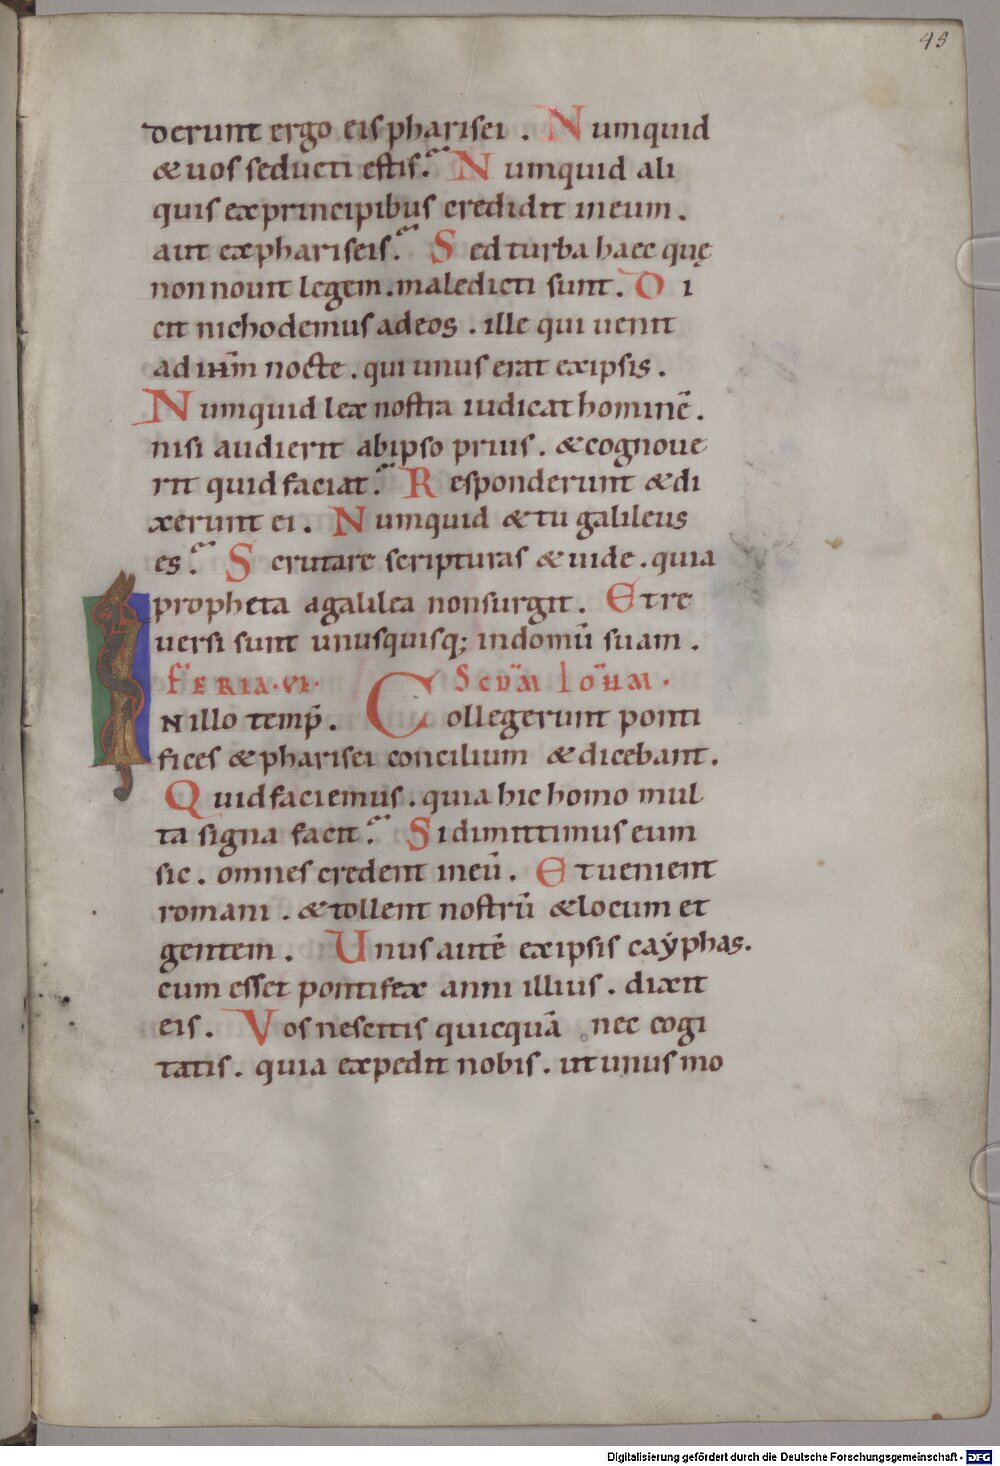 43
derunt ergo eis pharisei . Numquid
& uos seducti estis? Numquid ali
quis ex principibus credidit in eum .
aut ex phariseis? Sed turba haec quę
non nouit legem . maledicti sunt . Di
cit nichodemus ad eos . ille qui uenit
ad ihm̄ nocte . qui unus erat ex ipsis .
Numquid lex nostra iudicat hominē .
nisi audierit ab ipso prius . & cognoue
rit quid faciat? Responderunt & di
xerunt ei . Numquid & tu galileus
es? Scrutare scripturas & uide . quia
propheta a galilea non surgit . Et re
uersi sunt unusquisq; in domū suam .
FERIA . VI . Scdm̄ Iohm̄ .
IN illo temp̄ . Collegerunt ponti
fices & pharisei concilium & dicebant .
Quid faciemus . quia hic homo mul
ta signa facit? Si dimittimus eum
sic . omnes credent in eū . Et uenient
romani . & tollent nostrū & locum et
gentem . Unus autē ex ipsis cayphas .
cum esset pontifex anni illius . dixit
eis . Vos nescitis quicquā nec cogi
tatis . quia expedit nobis . ut unus mo
Digitalisierung gefördert durch die Deutsche Forschungsgemeinschaft - DFG